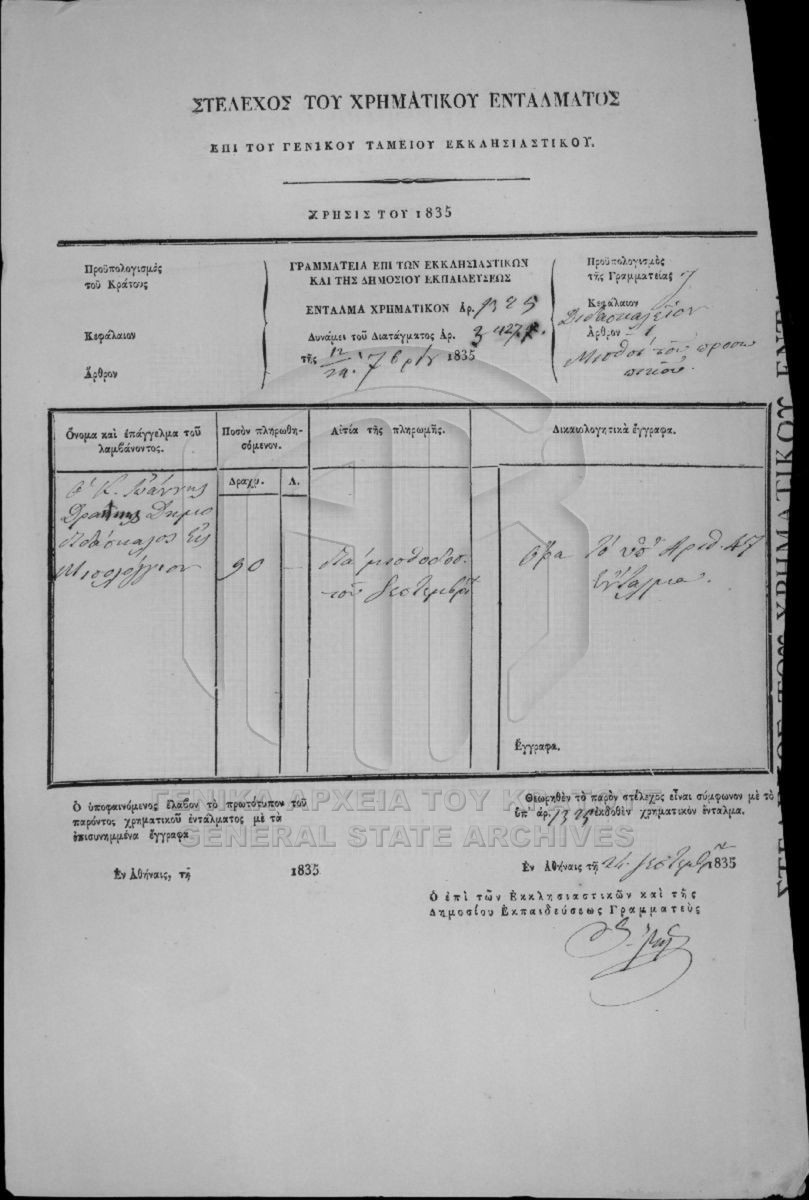 ΣΤΕΛΕΧΟΣ ΤΟΥ ΧΡΗΜΑΤΙΚΟΥ ΕΝΤΑΛΜΑΤΟΣ
ΕΠΙ ΤΟΥ ΓΕΝΙΚΟΥ ΤΑΜΕΙΟΥ ΕΚΚΛΗΣΙΑΣΤΙΚΟΥ.
ΧΡΗΣΙΣ ΤΟΥ 1835
Προϋπολογισμὸς
τοῦ Κράτους
Κεφάλαιον
Ἄρθρον
ΓΡΑΜΜΑΤΕΙΑ ΕΠΙ ΤΩΝ ΕΚΚΛΗΣΙΑΣΤΙΚΩΝ
ΚΑΙ ΤΗΣ ΔΗΜΟΣΙΟΥ ΕΚΠΑΙΔΕΥΣΕΩΣ
ΕΝΤΑΛΜΑ ΧΡΗΜΑΤΙΚΟΝ Αρ. 1325
Δυνάμει τοῦ Διατάγματος Αρ.
τῆς 12/24 7βρίου 1835
Προϋπολογισμὸς
τῆς Γραμματείας
Κεφάλαιον
Διδασκαλεῖον
Ἄρθρον 1
Μισθοὶ τοῦ προσω
πικοῦ.
Ὄνομα καὶ ἐπάγγελμα τοῦ
λαμβάνοντος.
Ποσὸν πληρωθη-
σόμενον.
Δραχμ. Λ.
Αἰτία τῆς πληρωμῆς.
Δικαιολογητικὰ ἔγγραφα.
Ὁ Κ. Ἰωάννης
Δημο
διδάσκαλος εἰς
Μισολόγγιον
90 —
διὰ μισθοδοσ.
τοῦ Σεπτεμβρί
Ὅρα τὸ ὑπ' Ἀριθ. 47
ἔνταλμα.
Ἔγγραφα.
Ὁ ὑποφαινόμενος ἔλαβον τὸ πρωτότυπον τοῦ
παρόντος χρηματικοῦ ἐντάλματος μὲ τὰ
ἐπισυνημμένα ἔγγραφα
Ἐν Ἀθήναις, τῇ 1835
Θεωρηθὲν τὸ παρὸν στέλεχος εἶναι σύμφωνον μὲ τὸ
ὑπ' ἀρ. 1325 ἐκδοθὲν χρηματικὸν ἔνταλμα.
Ἐν Ἀθήναις τῇ 24 Σεπτεμβρ 1835
Ὁ ἐπὶ τῶν Ἐκκλησιαστικῶν καὶ τῆς
Δημοσίου Ἐκπαιδεύσεως Γραμματεὺς
ΓΕΝΙΚΑ ΑΡΧΕΙΑ ΤΟΥ ΚΡΑΤΟΥΣ
GENERAL STATE ARCHIVES